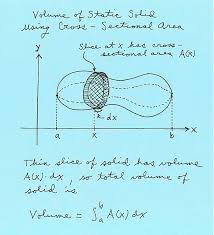 Volume of Static Solid
Using Cross-Sectional Area
Slice at x has cross-
sectional area A(x)
y
dx
x
a
x
b
Thin slice of solid has volume
A(x)·dx, so total volume of
solid is
Volume = ∫ₐᵇ A(x) dx